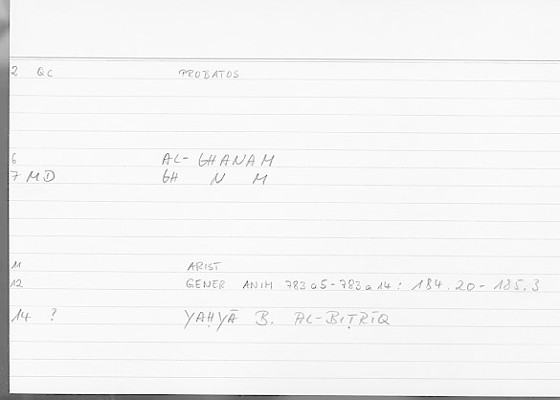 2 QC PROBATOS
6 AL-GHANAM
7 MD GH N M
11 ARIST
12 GENER ANIM 783a5-783a14: 184.20-185.3
14 ? YAḤYĀ B. AL-BIṬRĪQ